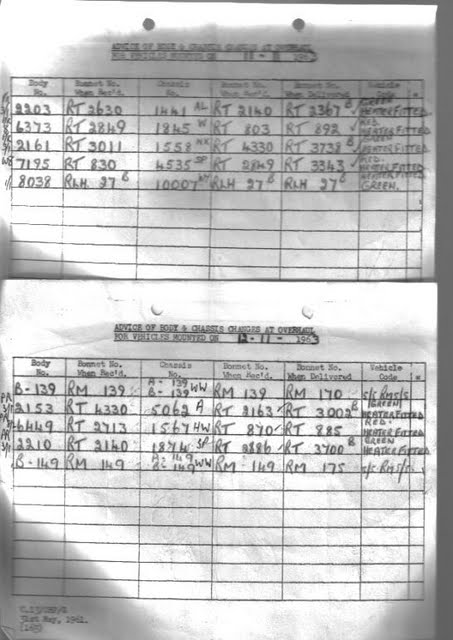 ADVICE OF BODY & CHASSIS CHANGES AT OVERHAUL
FOR VEHICLES MOUNTED ON 11 - 11 1963
Body No. Bonnet No. When Rec'd. Chassis No. Bonnet No. When Rec'd. Bonnet No. When Delivered Vehicle Code
2203 RT 2630 1441 AL RT 2140 RT 2367 B GREEN HEATER FITTED.
6373 RT 2849 1845 W RT 803 RT 892 RED. HEATER FITTED
2161 RT 3011 1558 NK RT 4330 RT 3738 B GREEN HEATER FITTED.
7195 RT 830 4535 SP RT 2849 RT 3343 RED. HEATER FITTED
8038 RLH 27 B 10007 RLH 27 B RLH 27 B GREEN.
ADVICE OF BODY & CHASSIS CHANGES AT OVERHAUL
FOR VEHICLES MOUNTED ON 12 - 11 - 1963
Body No. Bonnet No. When Rec'd. Chassis No. Bonnet No. When Rec'd. Bonnet No. When Delivered Vehicle Code
B - 139 RM 139 A - 139 B - 139 WW RM 139 RM 170 S/S RM5/5
2153 RT 4330 5062 A RT 2163 RT 3002 B GREEN HEATER FITTED
6449 RT 2713 1567 HW RT 870 RT 885 RED. HEATER FITTED
2210 RT 2140 1874 SP RT 2886 RT 3700 B GREEN HEATER FITTED
B - 149 RM 149 A - 149 B - 149 WW RM 149 RM 175 S/S RM5/5
31st May, 1961.